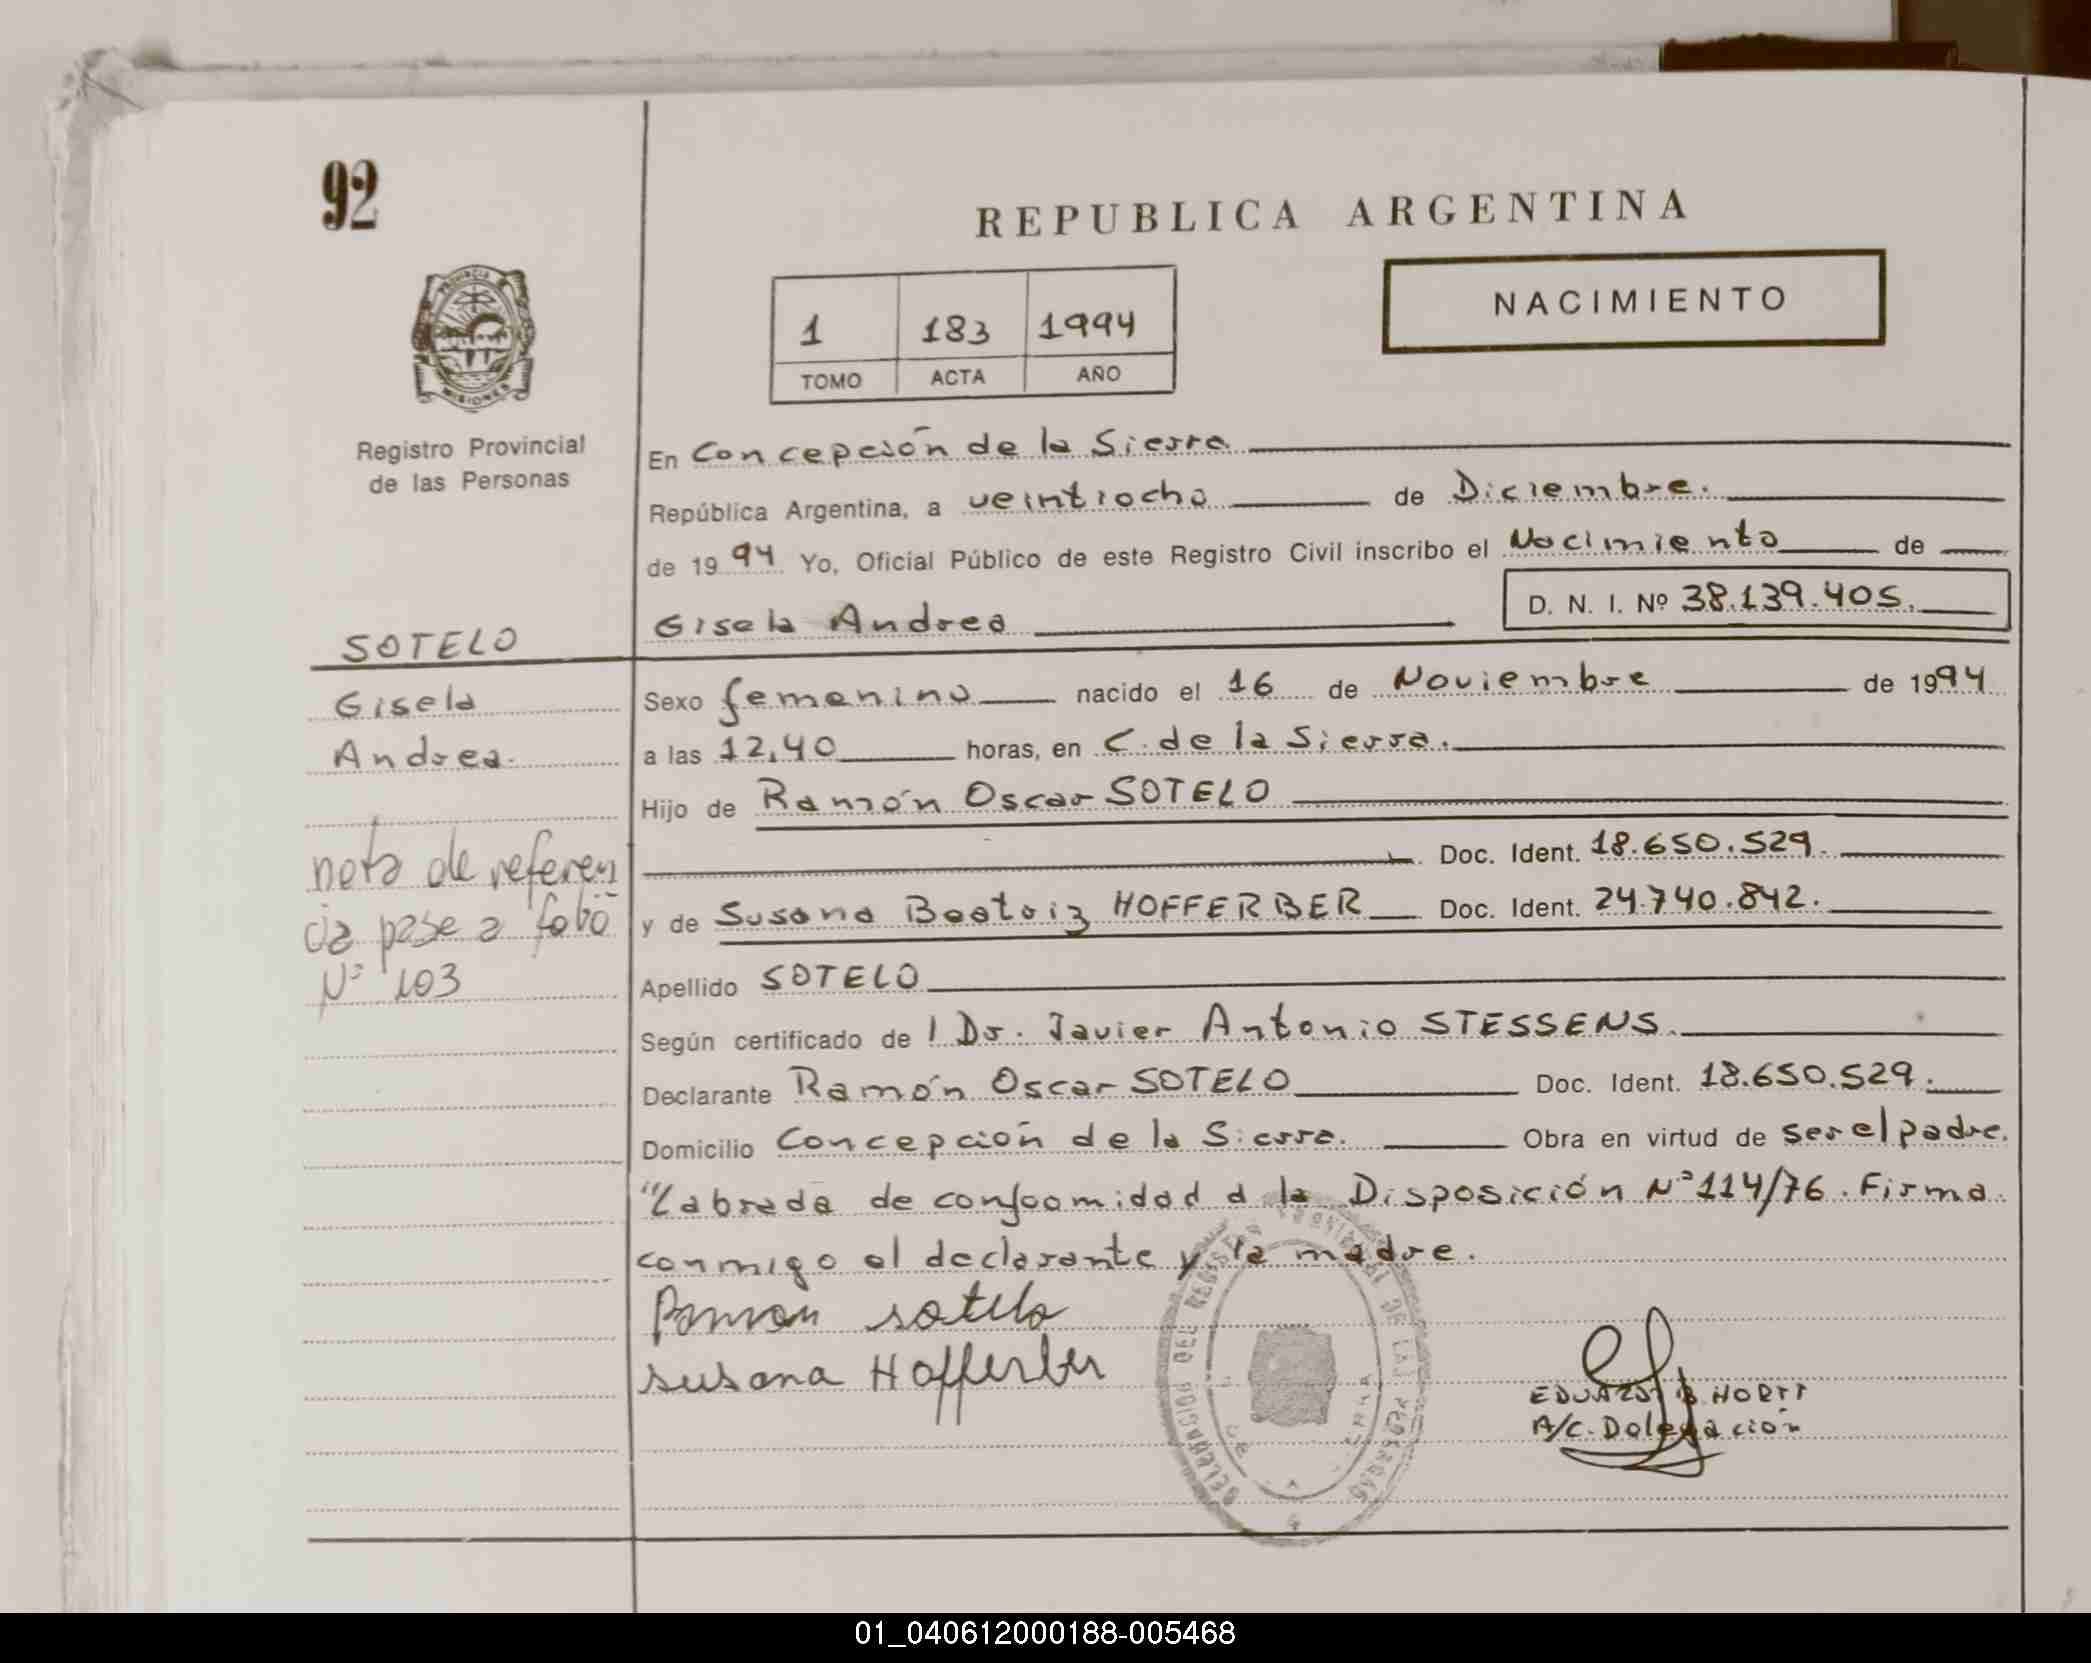 92
REPUBLICA ARGENTINA
NACIMIENTO
1 183 1994
TOMO ACTA AÑO
PROVINCIA DE
MISIONES
Registro Provincial
de las Personas
En Concepción de la Sierra
República Argentina, a veintiocho de Diciembre.
de 1994 Yo, Oficial Público de este Registro Civil inscribo el Nacimiento de
D. N. I. Nº 38.139.405.
Gisela Andrea
SOTELO
Gisela
Andrea.
Sexo femenino nacido el 16 de Noviembre de 1994
a las 12,40 horas, en C. de la Sierra.
Hijo de Ramón Oscar SOTELO
Doc. Ident. 18.650.529.
y de Susana Beatriz HOFFERBER Doc. Ident. 24.740.842.
nota de referen
cia pase a folio
Nº 103
Apellido SOTELO
Según certificado de l Dr. Javier Antonio STESSENS.
Declarante Ramón Oscar SOTELO Doc. Ident. 18.650.529.
Domicilio Concepción de la Sierra. Obra en virtud de ser el padre.
"Labrada de conformidad a la Disposición Nº 114/76. Firma
conmigo el declarante y la madre.
Ramon sotelo
susana Hofferber
DELEGACION DEL REGISTRO PROVINCIAL DE LAS PERSONAS
EDUARDO
A/C. Delegación
01_040612000188-005468